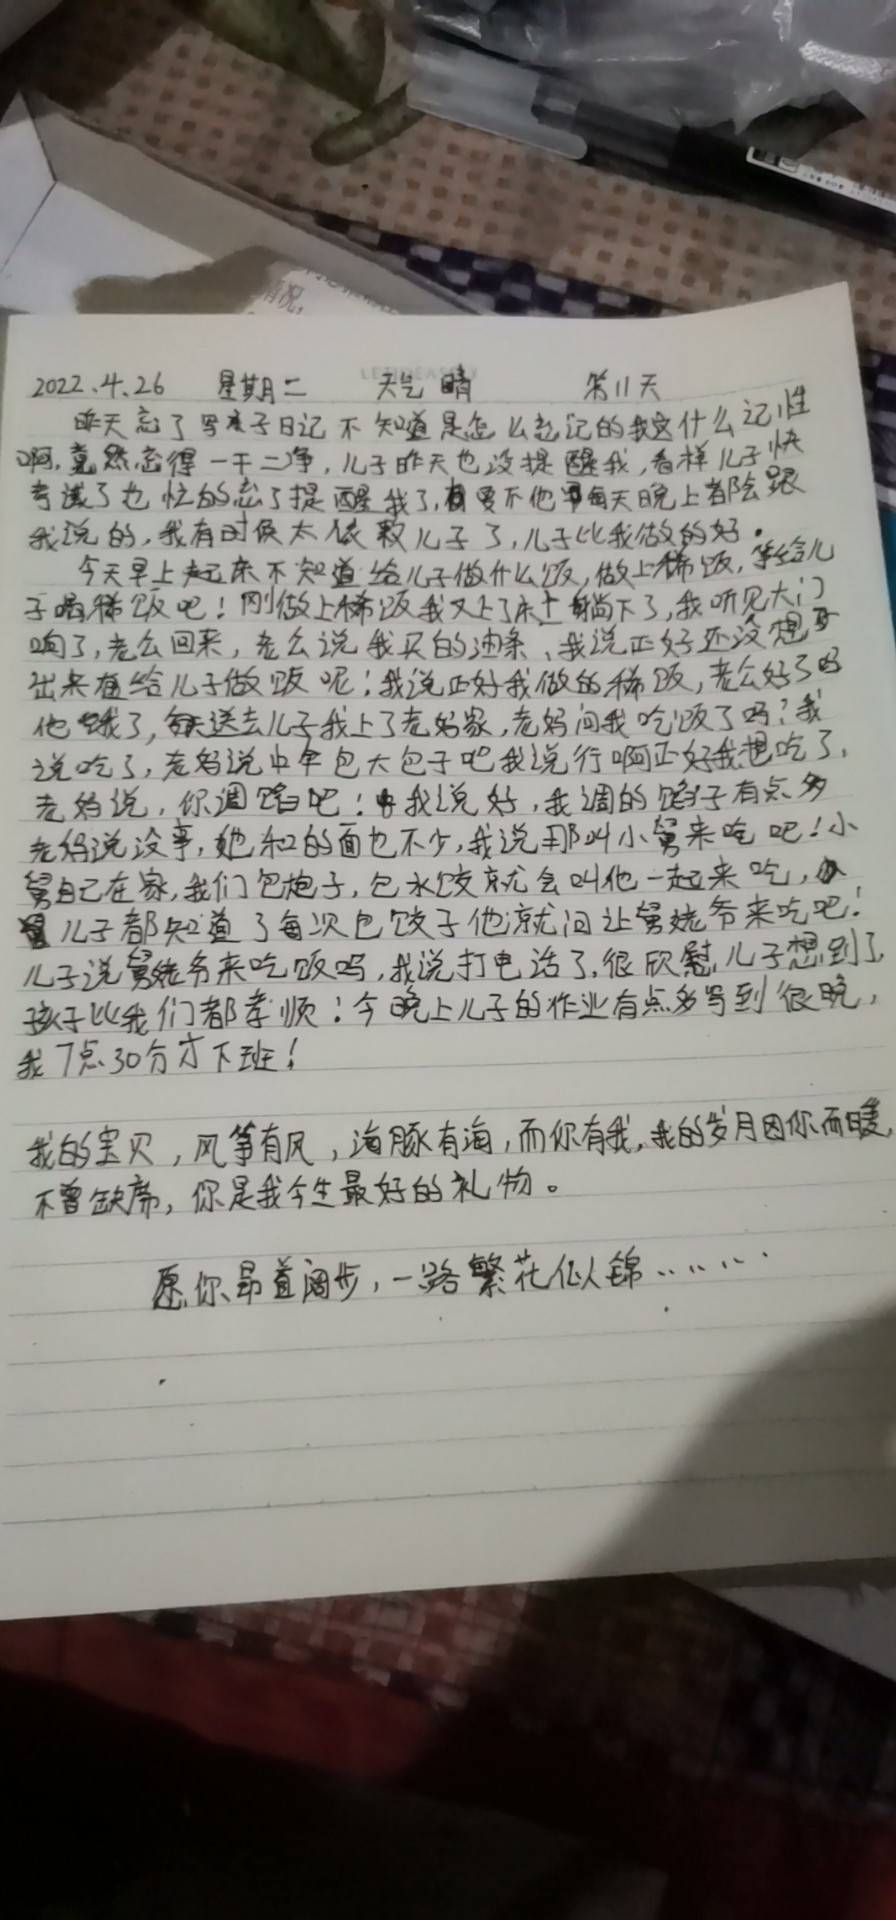 情况,
2022.4.26 星期二 天气 晴 第11天
昨天忘了写亲子日记不知道是怎么忘记的我这什么记性
啊,竟然忘得一干二净,儿子昨天也没提醒我,看样儿子快
考试了也忙的忘了提醒我了,要不他每天晚上都会跟
我说的,我有时侯太依赖儿子了,儿子比我做的好。
今天早上起来不知道给儿子做什么饭,做上稀饭,给儿
子喝稀饭吧!刚做上稀饭我又上了床上躺下了,我听见大门
响了,老公回来,老公说我买的油条、我说正好还没想
出来给儿子做饭呢!我说正好我做的稀饭,老公好了吗
他饿了,送去儿子我上了老妈家,老妈问我吃饭了吗?我
说吃了,老妈说中午包大包子吧我说行啊正好我想吃了,
老妈说,你调馅吧!我说好,我调的馅子有点多
老妈说没事,她和的面也不少,我说那叫小舅来吃吧!小
舅自己在家,我们包炮子,包水饺就会叫他一起来吃,
儿子都知道了每次包饺子他就问让舅姥爷来吃吧!
儿子说舅姥爷来吃饭吗,我说打电话了,很欣慰,儿子想到了,
孩子比我们都孝顺!今晚上儿子的作业有点多写到很晚,
我7点30分才下班!
我的宝贝,风筝有风,海豚有海,而你有我,我的岁月因你而暖,
不曾缺席,你是我今生最好的礼物。
愿你昂首阔步,一路繁花似锦………